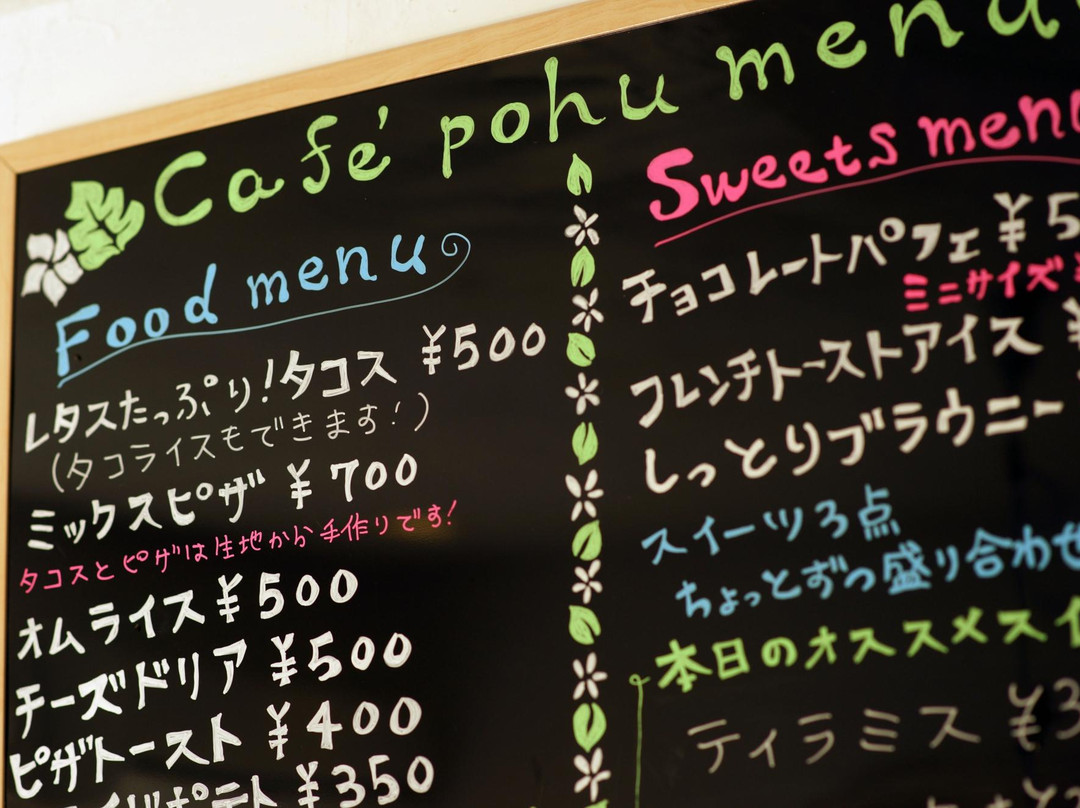 Café pohu menu
Food menu
レタスたっぷり!タコス ¥500
(タコライスもできます!)
ミックスピザ ¥700
タコスとピザは生地から手作りです!
オムライス ¥500
チーズドリア ¥500
ピザトースト ¥400
ポテト ¥350
Sweets menu
チョコレートパフェ ¥5
ミニサイズ ¥
フレンチトーストアイス ¥
しっとりブラウニー
スイーツ3点
ちょっとずつ盛り合わせ
本日のオススメスイ
ティラミス ¥3